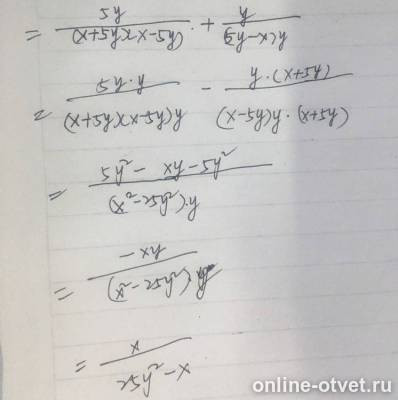 = 5y/(x+5y)(x-5y) + y/(5y-x)y
= 5y·y/(x+5y)(x-5y)y - y·(x+5y)/(x-5y)y·(x+5y)
= 5y²-xy-5y²/(x²-25y²)·y
= -xy/(x²-25y²)y
= x/25y²-x
online-otvet.ru